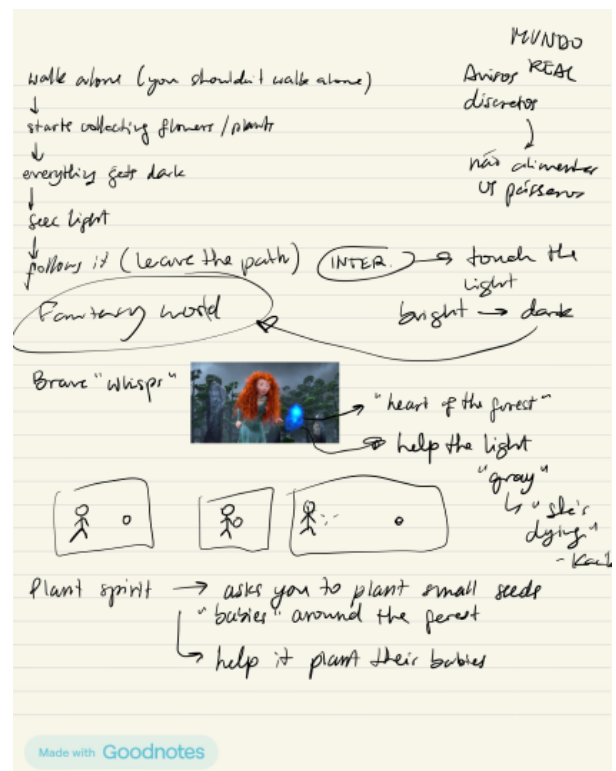 MUNDO
REAL
Avisos
discretos
não alimentar
os pássaros
walk alone (you shouldn't walk alone)
starts collecting flowers / plants
everything gets dark
seec light
follows it (leave the path)
INTER.
touch the
light
bright → dark
Fantasy world
Brave "whisps"
"heart of the forest"
help the light
"gray"
"she's
dying"
Plant spirit → asks you to plant small seeds
"babies" around the forest
help it plant their babies
Made with Goodnotes